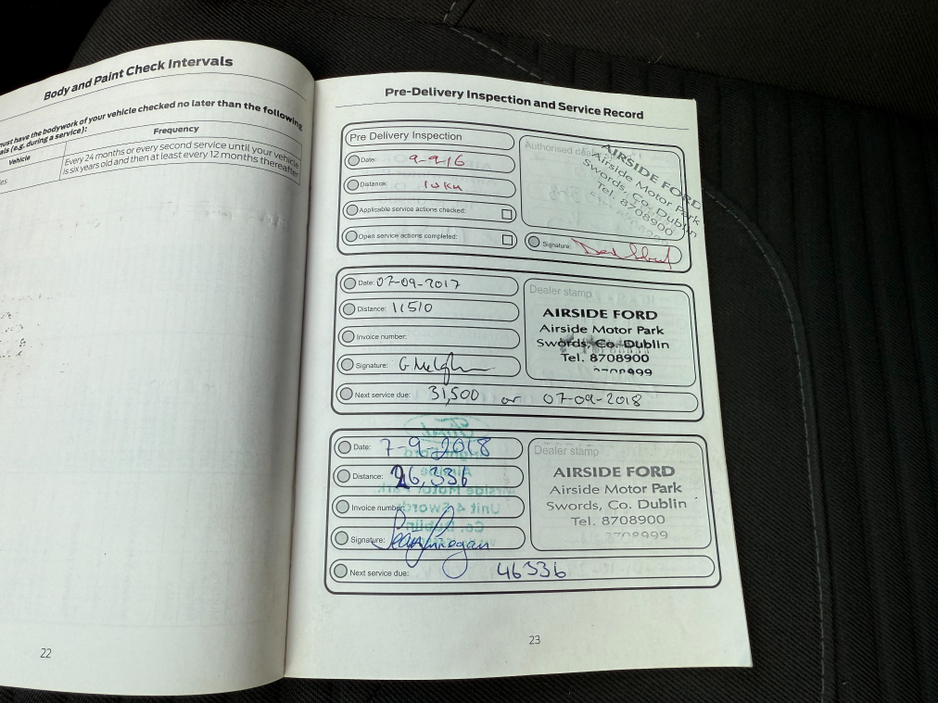 Body and Paint Check Intervals
must have the bodywork of your vehicle checked no later than the following
als (e.g. during a service):
Vehicle
Frequency
les
Every 24 months or every second service until your vehicle
is six years old and then at least every 12 months thereafter
22
Pre-Delivery Inspection and Service Record
Pre Delivery Inspection
Date: 9-9-16
Distance: 10km
Applicable service actions checked:
Open service actions completed:
Authorised
AIRSIDE FORD
Airside Motor Park
Swords, Co. Dublin
Tel. 8708900
Signature:
Date: 07-09-2017
Distance: 11510
Invoice number:
Signature:
Next service due: 31,500 or 07-09-2018
Dealer stamp
AIRSIDE FORD
Airside Motor Park
Swords, Co. Dublin
Tel. 8708900
8708999
Date: 7-9-2018
Distance: 26,336
Invoice number:
Signature:
Next service due: 46336
Dealer stamp
AIRSIDE FORD
Airside Motor Park
Swords, Co. Dublin
Tel. 8708900
8708999
23